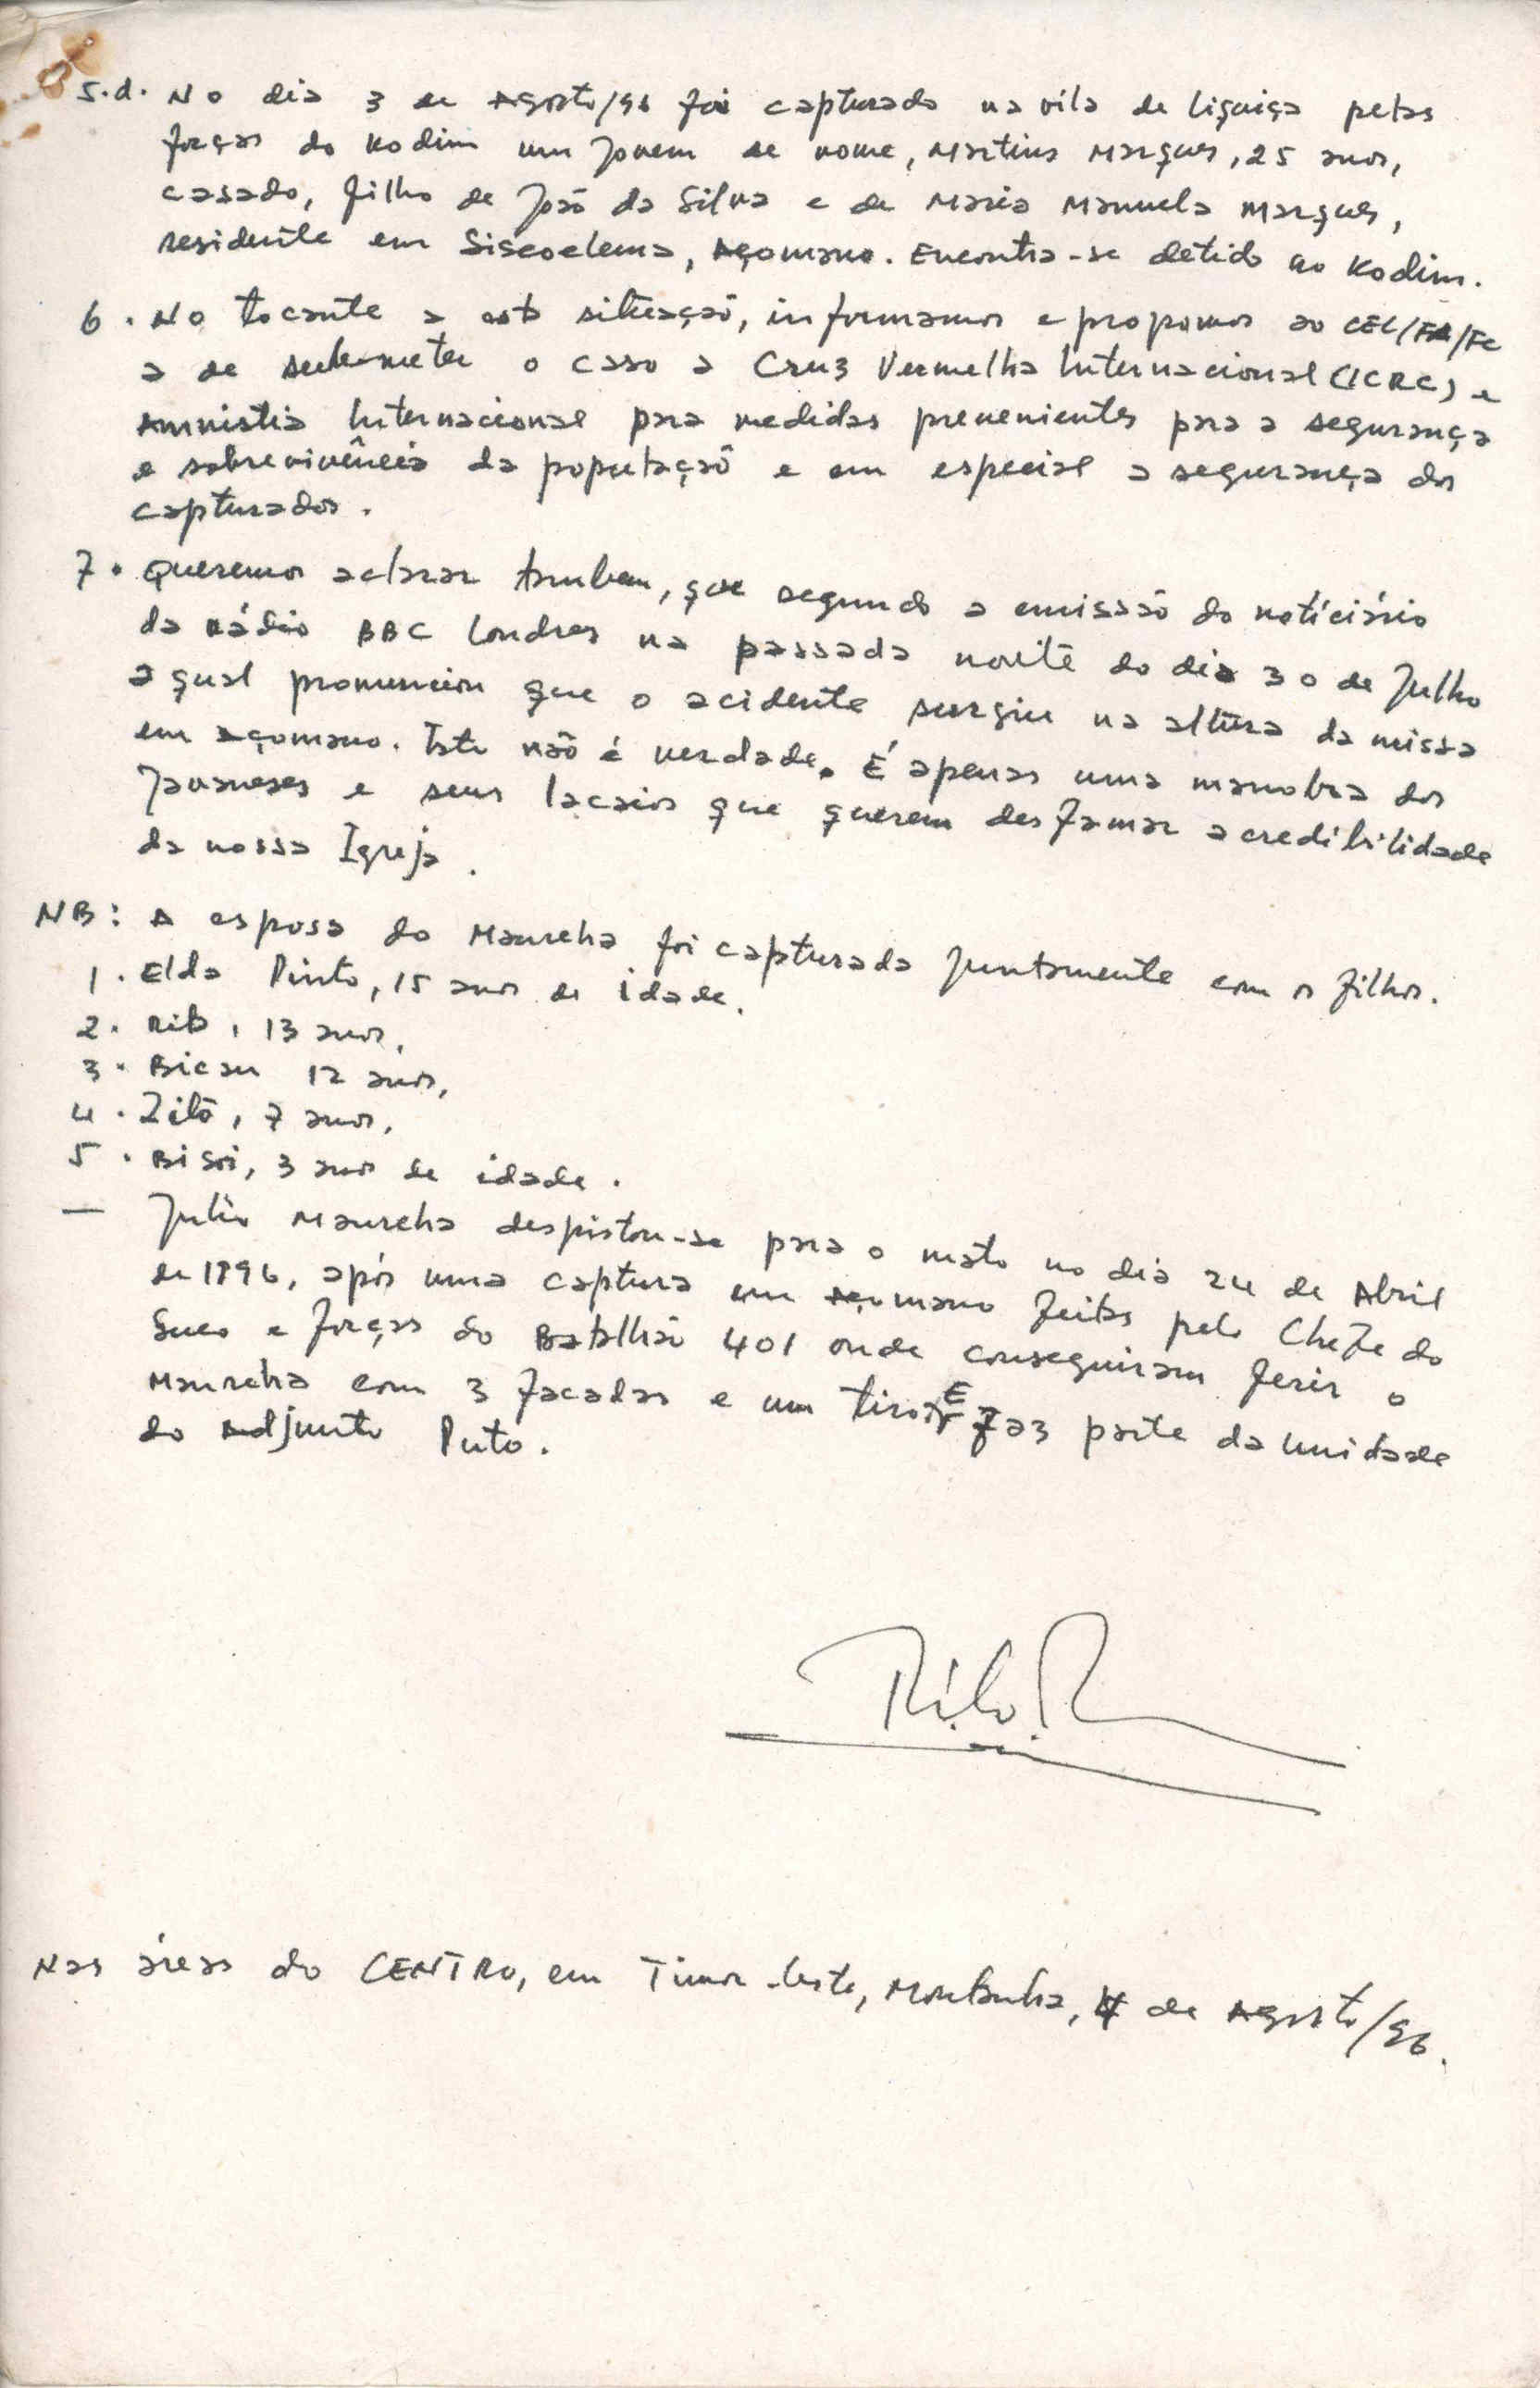 5.d. No dia 3 de Agosto/96 foi capturado na vila de Liquiça pelas
forças do Kodim um jovem de nome, Martins Marques, 25 anos,
casado, filho de João da Silva e de Maria Manuela Marques,
residente em Siscoelema, Açomano. Encontra-se detido no Kodim.
6. No tocante a esta situação, informamos e propomos ao CEC/FA/FC
a de sub-meter o caso a Cruz Vermelha Internacional (ICRC) e
Amnistia Internacional para medidas prevenientes para a segurança
e sobrevivência da população e em especial a segurança dos
capturados.
7. Queremos aclarar tambem, que segundo a emissão do noticiário
da Rádio BBC Londres na passada noite do dia 30 de Julho
a qual pronunciou que o acidente surgiu na altura da missa
em Açomano. Isto não é verdade. É apenas uma manobra dos
Javaneses e seus lacaios que querem desfamar a credibilidade
da nossa Igreja.
NB: A esposa do Maureha foi capturada juntamente com os filhos.
1. Elda Pinto, 15 anos de idade.
2. Rita, 13 anos,
3. Bicau 12 anos,
4. Zito, 7 anos,
5. Bisoi, 3 anos de idade.
— Julio Maureha despistou-se para o mato no dia 24 de Abril
de 1996, após uma captura em Açomano feitas pelo Chefe do
Suco e forças do Batalhão 401 onde conseguiram ferir o
Maureha com 3 facadas e um tiro. E faz parte da unidade
do Adjunto Puto.
Nas áreas do CENTRO, em Timor-Leste, Montanha, 4 de Agosto/96.